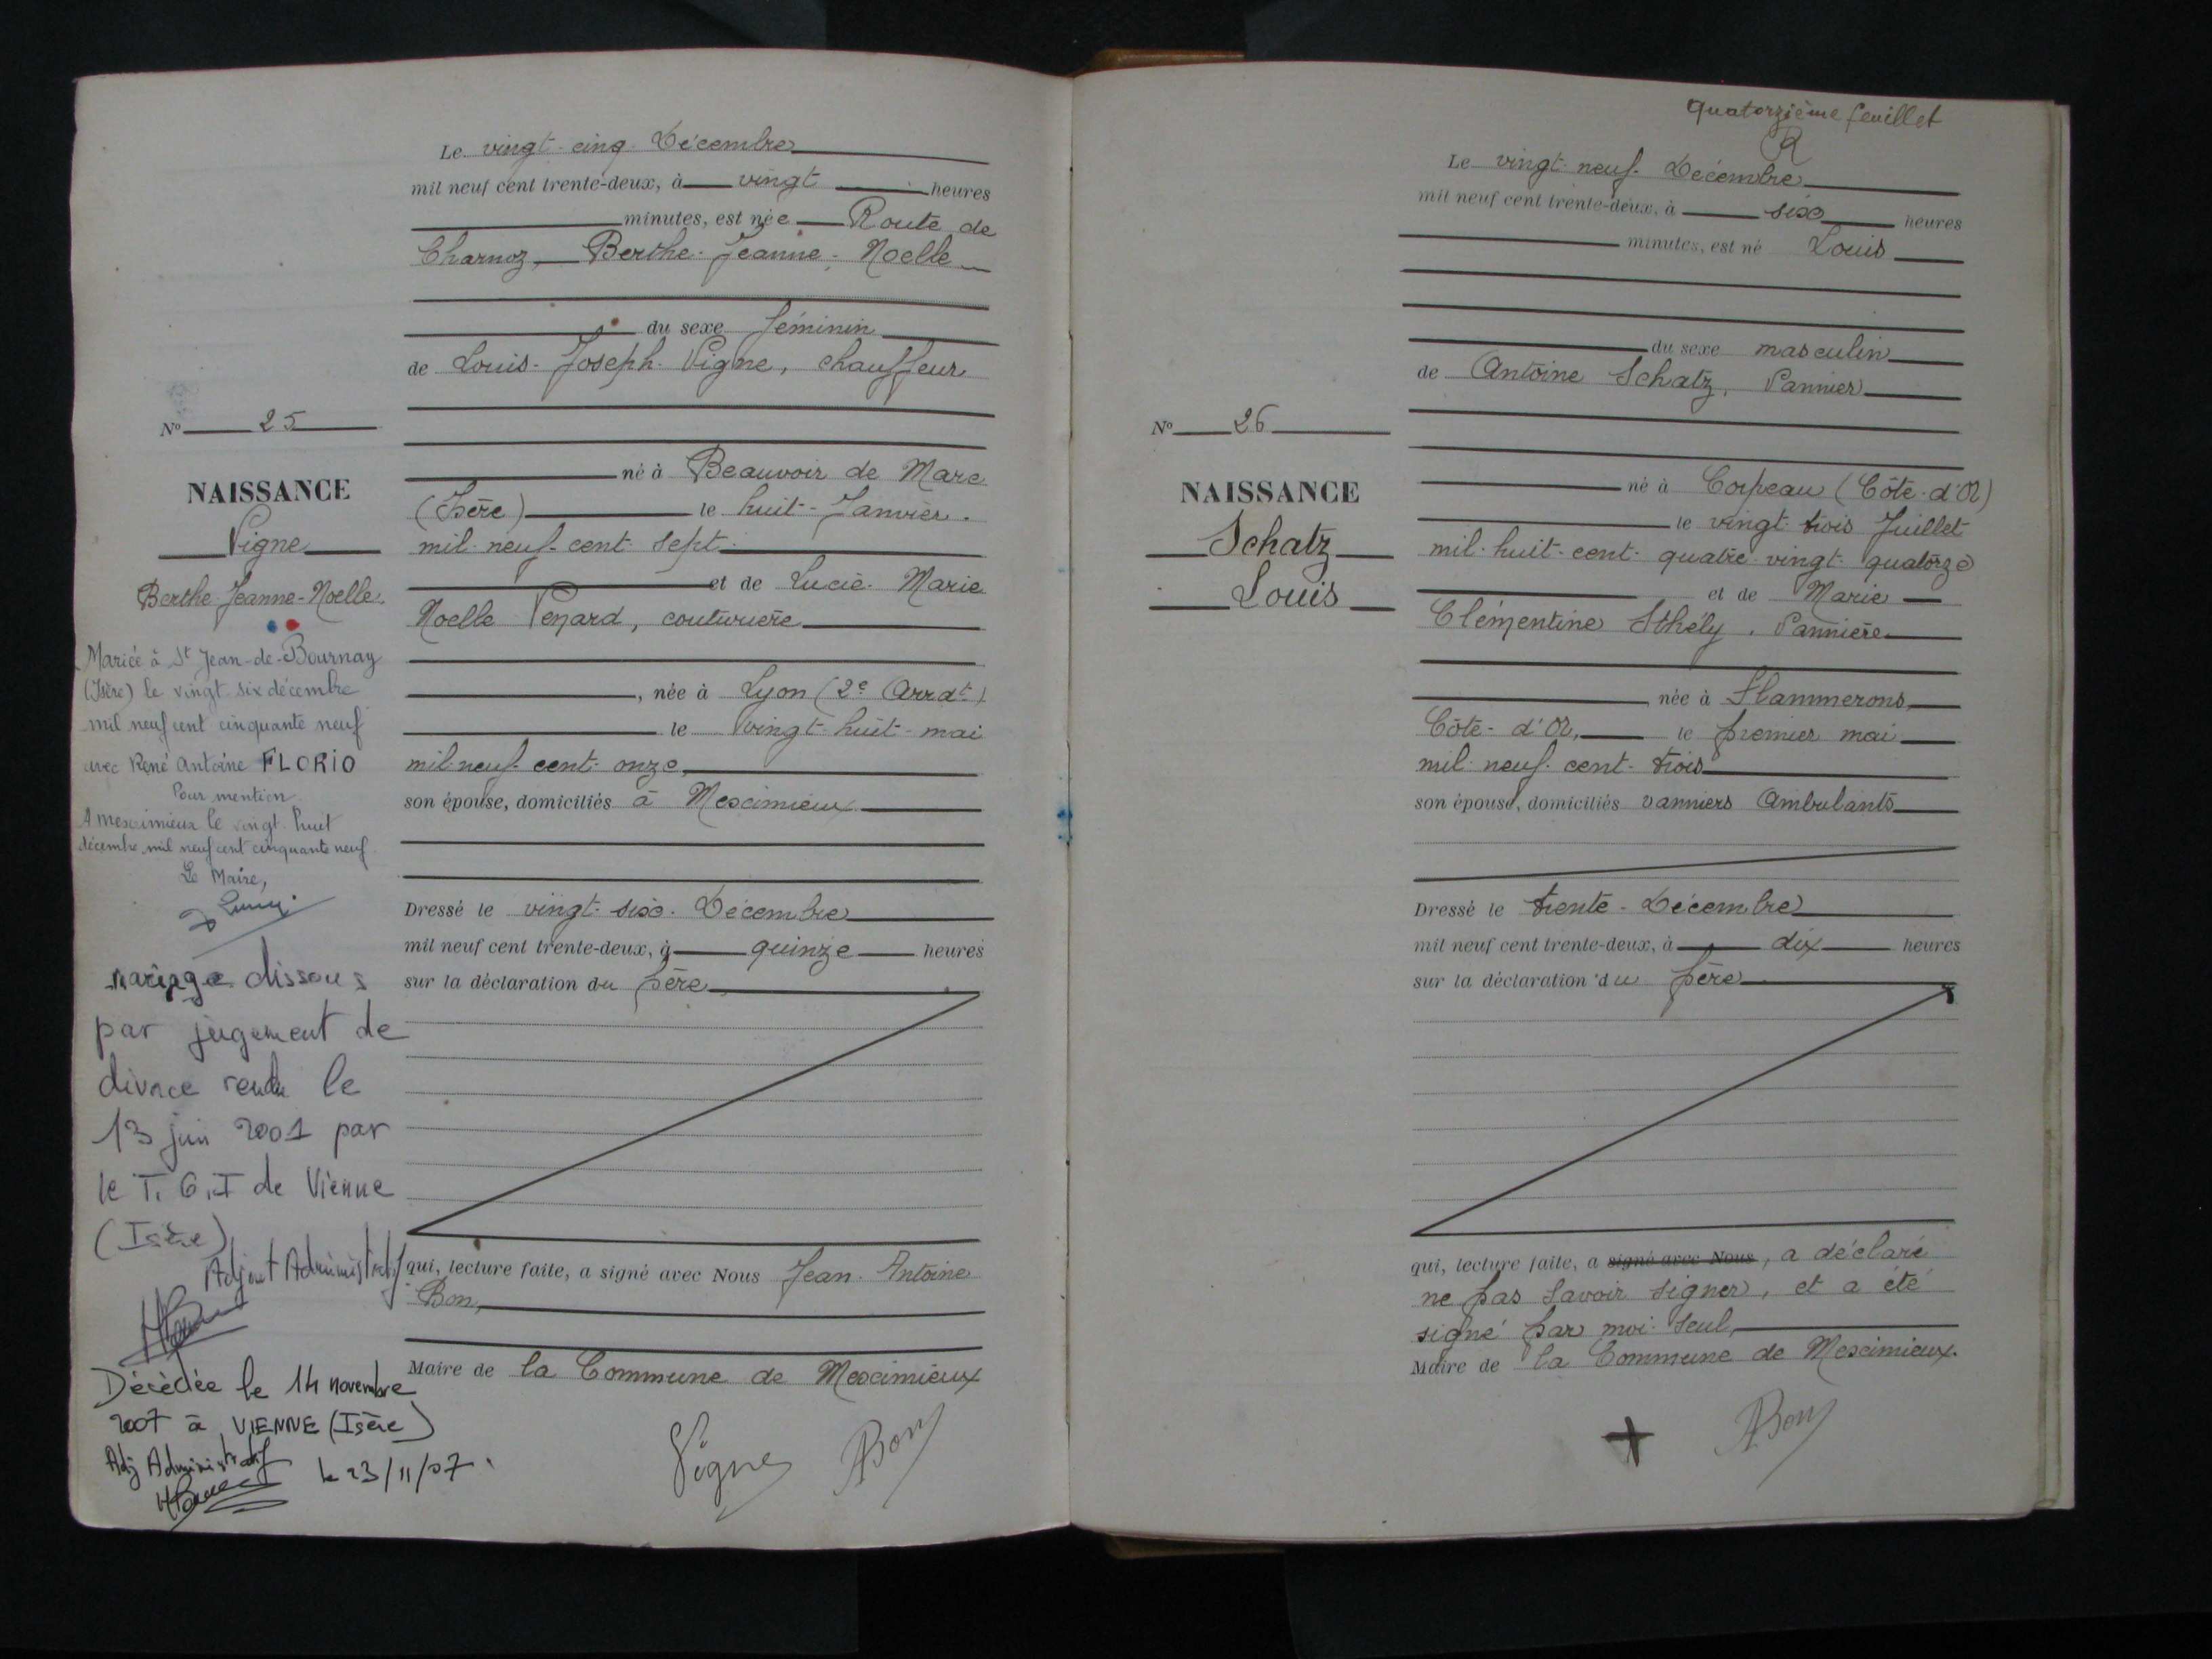 Le vingt-cinq Décembre
mil neuf cent trente-deux, à vingt heures
minutes, est née Route de
Charnoz, Berthe-Jeanne-Noelle
du sexe féminin
de Louis-Joseph Vigne, chauffeur
né à Beauvoir de Marc
(Isère) le huit-Janvier.
mil neuf cent sept
et de Lucie-Marie
Noelle Penard, couturière
, née à Lyon (2e Arrdt)
le vingt-huit-mai
mil neuf cent onze,
son épouse, domiciliés à Meximieux
Dressé le vingt-six Décembre
mil neuf cent trente-deux, à quinze heures
sur la déclaration du père
qui, lecture faite, a signé avec Nous Jean Antoine
Bon,
Maire de la Commune de Meximieux
Vigne ABon
No 25
NAISSANCE
Vigne
Berthe-Jeanne-Noelle
Mariée à St Jean-de-Bournay
(Isère) le vingt six décembre
mil neuf cent cinquante neuf
avec René Antoine FLORIO
Pour mention
A meximieux le vingt huit
décembre mil neuf cent cinquante neuf
Le Maire,
mariage dissous
par jugement de
divorce rendu le
13 juin 2001 par
le T.G.I de Vienne
(Isère)
Adjoint Administratif
Décédée le 14 novembre
2007 à VIENNE (Isère)
Adj Administratif le 23/11/07.
quatorzième feuillet
R
Le vingt-neuf Décembre
mil neuf cent trente-deux, à six heures
minutes, est né Louis
du sexe masculin
de Antoine Schatz, Vannier
né à Corpeau (Côte-d'Or)
le vingt-trois Juillet
mil-huit-cent-quatre-vingt-quatorze
et de Marie
Clémentine Sthély, Vannière
née à Flammerons
Côte-d'Or, le premier mai
mil neuf cent trois
son épouse, domiciliés vanniers Ambulants
Dressé le trente-Décembre
mil neuf cent trente-deux, à dix heures
sur la déclaration du père
qui, lecture faite, a signé avec Nous, a déclaré
ne pas savoir signer, et a été
signé par moi seul,
Maire de la Commune de Meximieux.
+ ABon
No 26
NAISSANCE
Schatz
Louis